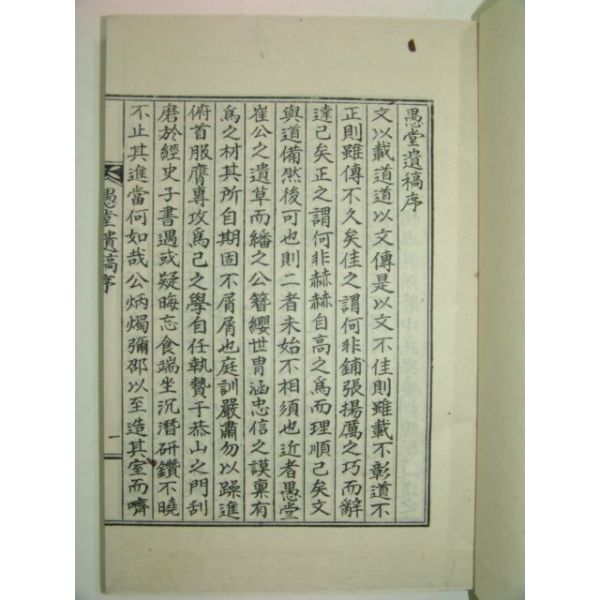 愚堂遺稿序
文以載道道以文傳是以文不佳則雖載不彰道不
正則雖傳不久矣佳之謂何非鋪張揚厲之巧而辭
達已矣正之謂何非赫赫自高之爲而理順已矣文
與道備然後可也則二者未始不相須也近者愚堂
崔公之遺草而繙之公簪纓世胄涵忠信之謨稟有
爲之材其所自期固不屑屑也庭訓嚴肅勿以躁進
俯首服膺專攻爲己之學自任執贄于恭山之門刮
磨於經史子書遇或疑晦忘食端坐沉潛研鑽不曉
不止其進當何如哉公炳燭彌邵以至造其室而嚌
愚堂遺稿序
一